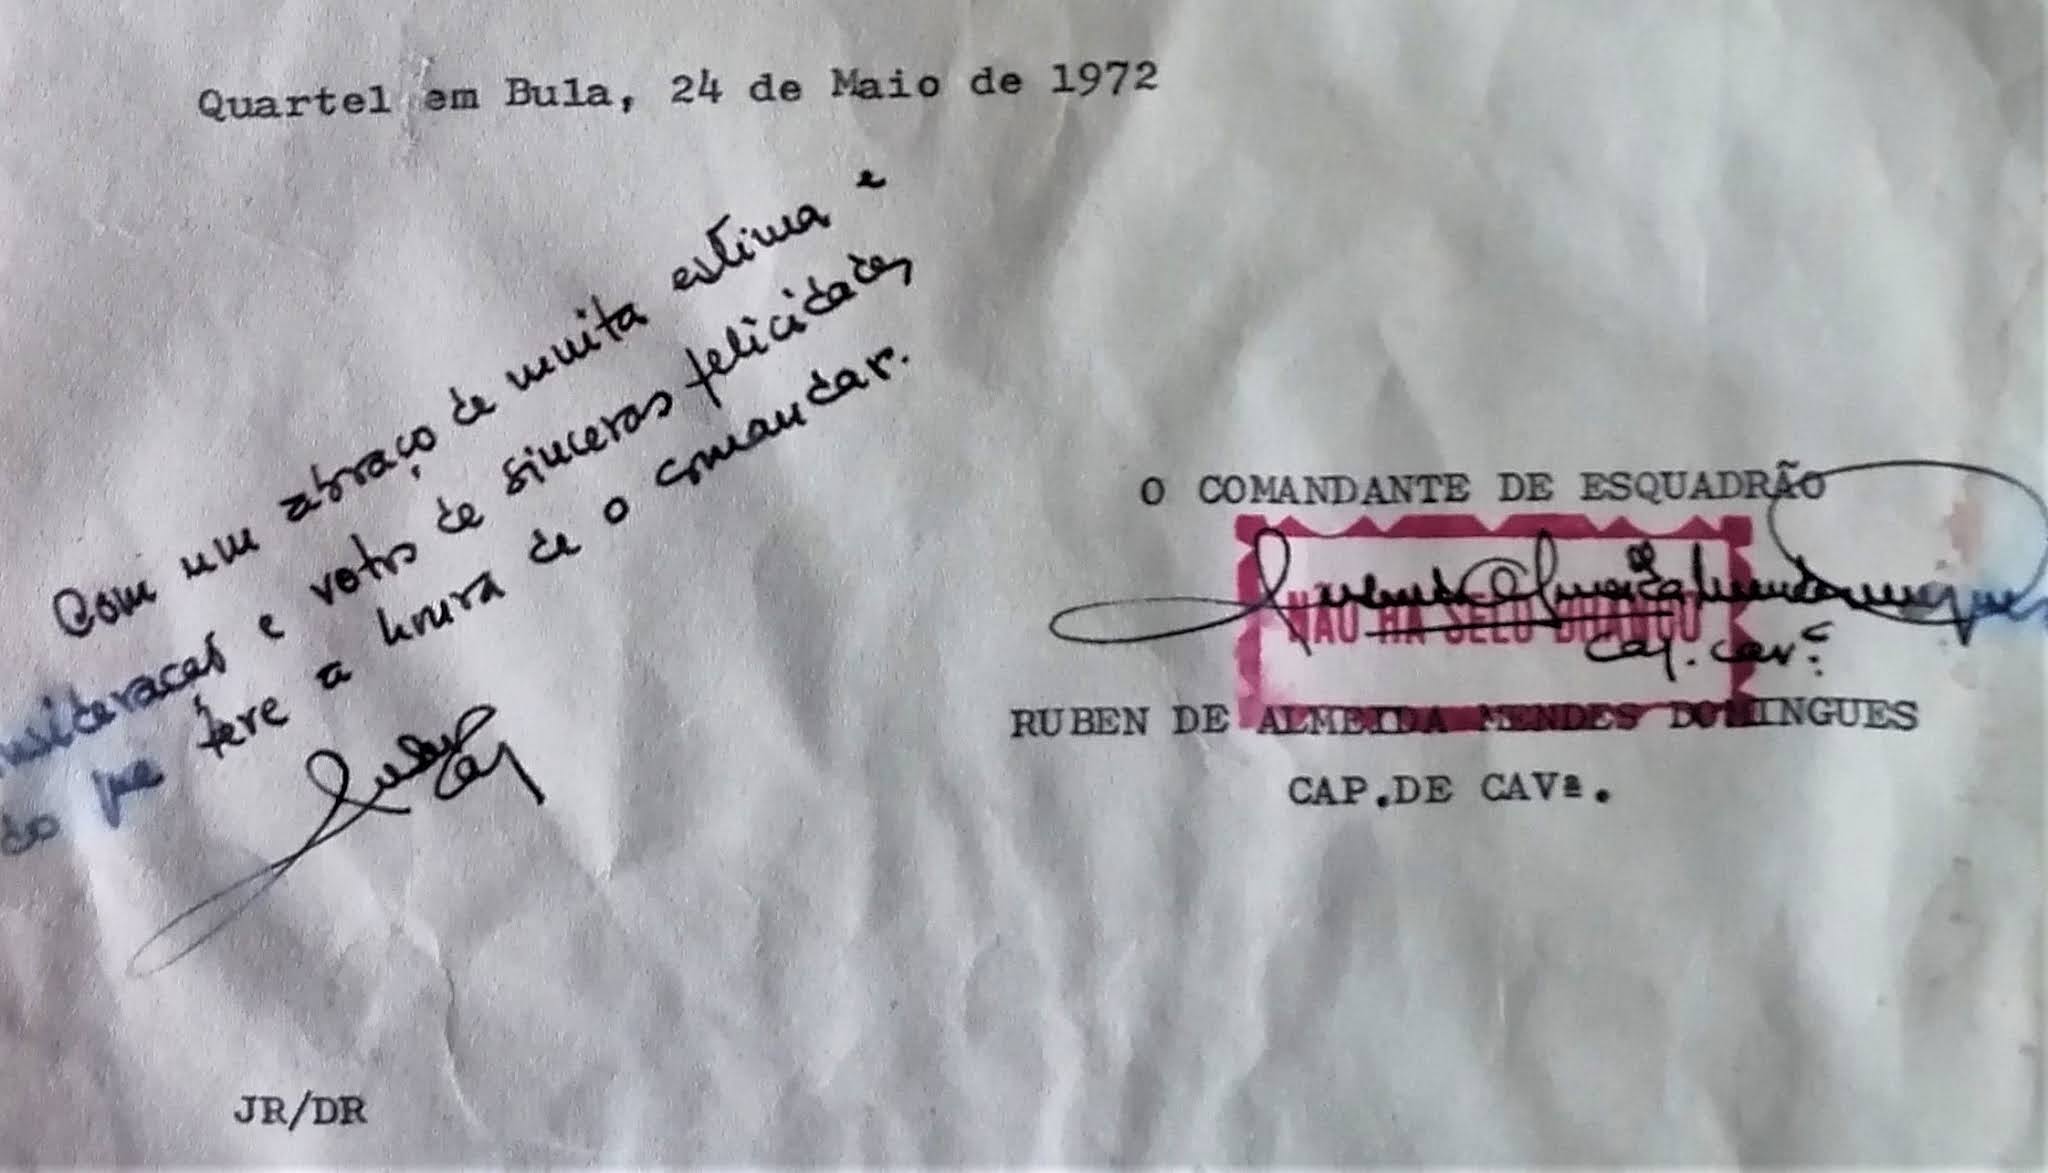 Quartel em Bula, 24 de Maio de 1972
Com um abraço de muita estima e
nsideracas e votos de sinceras felicidades
do que teve a honra de o comandar.
Cap
O COMANDANTE DE ESQUADRÃO
NÃO HÁ SELO BRANCO
Ruben de Almeida Mendes Domingues
Cap. Cavª
RUBEN DE ALMEIDA MENDES DOMINGUES
CAP.DE CAVª.
JR/DR